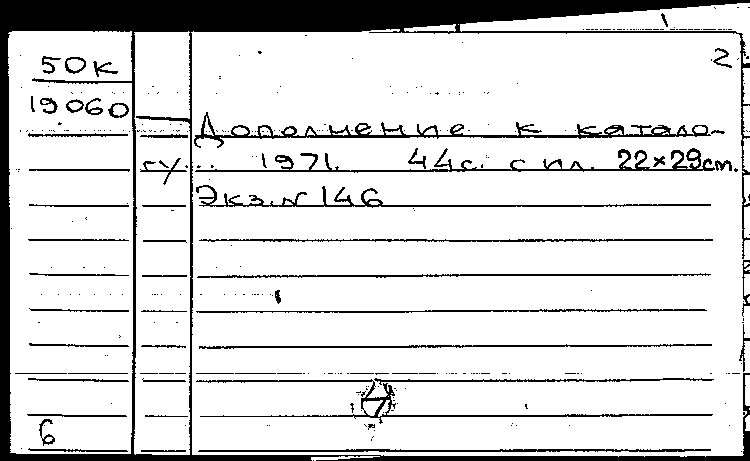 2
50к
19060
Дополнение к катало-
гу... 1971. 44с. с ил. 22×29cm.
Экз. N 146
6